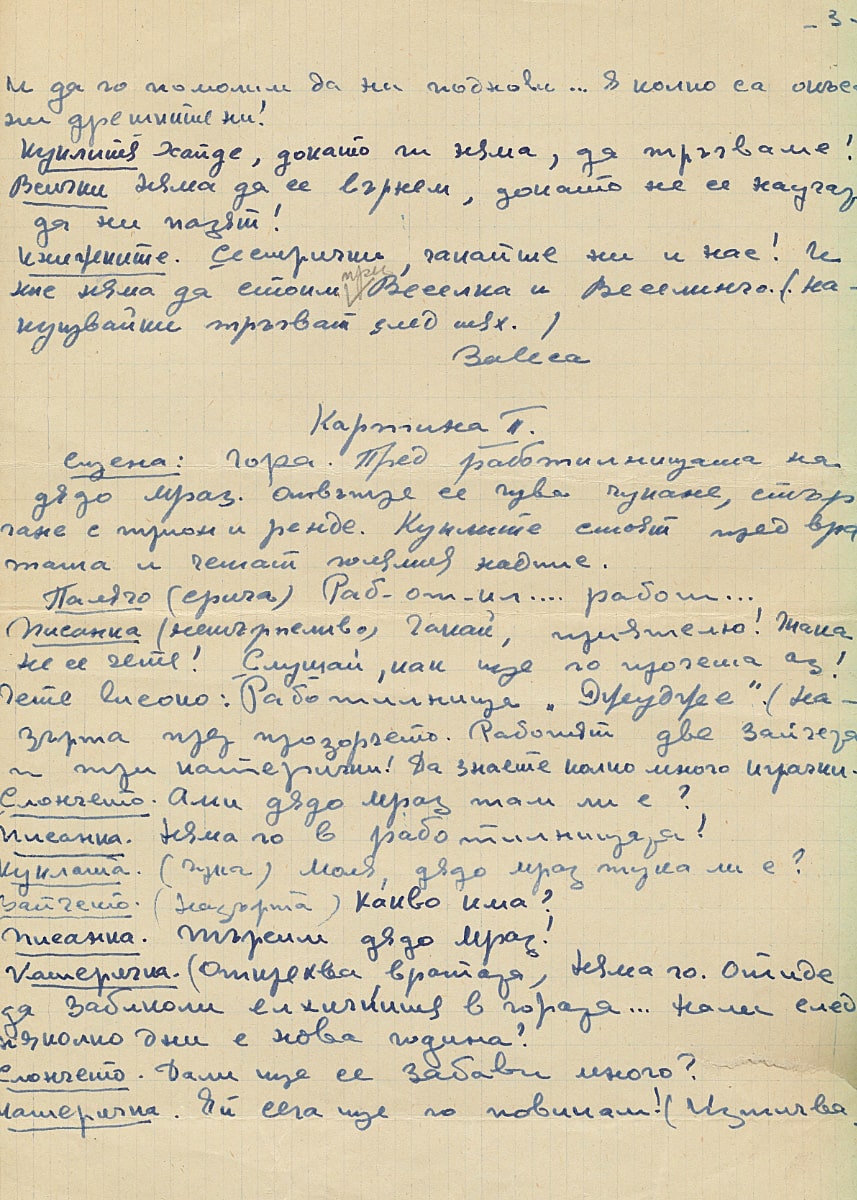 - 3 -
и да го помолим да ни поднови... Я колко са окъса
ни дрешките ни!
Куклите Хайде, докато ги няма, да тръгваме!
Всички Няма да се върнем, докато не се научат
да ни пазят!
Книжките. Сестрички, чакайте ни и нас! И
ние няма да стоим при Веселка и Веселинчо. (На-
куцвайки тръгват след тях.)
Завеса
Картина II.
Сцена: Гора. Пред работилницата на
дядо Мраз. Отвътре се чува чукане, стър
гане с трион и ренде. Куклите стоят пред вра
тата и четат големия надпис.
Палячо (срича) Раб-от-ил.... работ...
Писанка (нетърпеливо) Чакай, приятелю! Така
не се чете! Слушай, как ще го прочета аз!
Чете високо: Работилница „Джудже". (На-
зърта през прозорчето. Работят две зайчета
и три катерички! Да знаете колко много играчки.
Слончето. Ами дядо Мраз там ли е?
Писанка. Няма го в работилницата!
Куклата. (Чука) Моля, дядо Мраз тука ли е?
Зайчето. (Назърта) Какво има?
Писанка. Търсим дядо Мраз!
Катеричка. (Открехва вратата, Няма го. Отиде
да забликоли елхичките в гората... Нали след
няколко дни е нова година?
Слончето. Дали ще се забави много?
Катеричка. Ей сега ще го повикам! (Изтичва